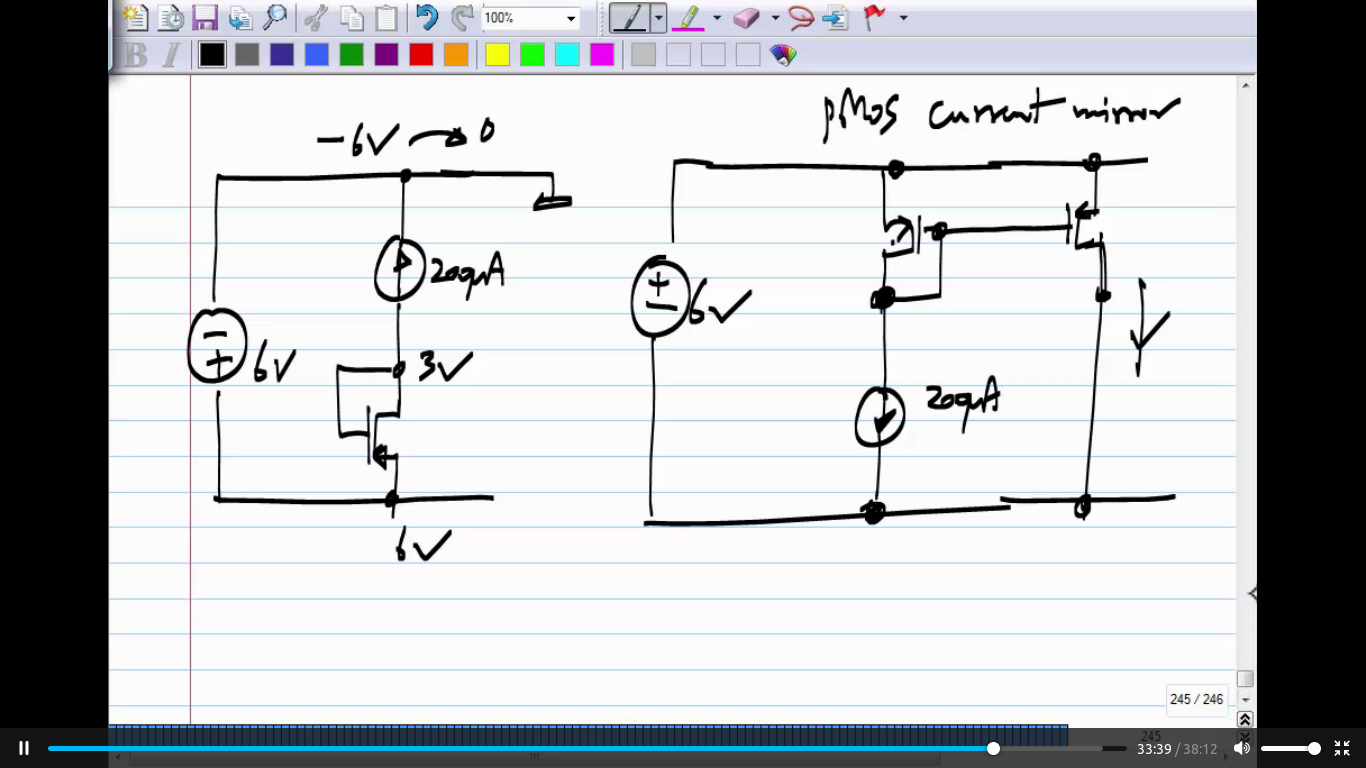 100%
B I
pMos current mirror
-6V 0
200μA
6V
6V
3V
200μA
6V
245 / 246
245
33:39 / 38:12